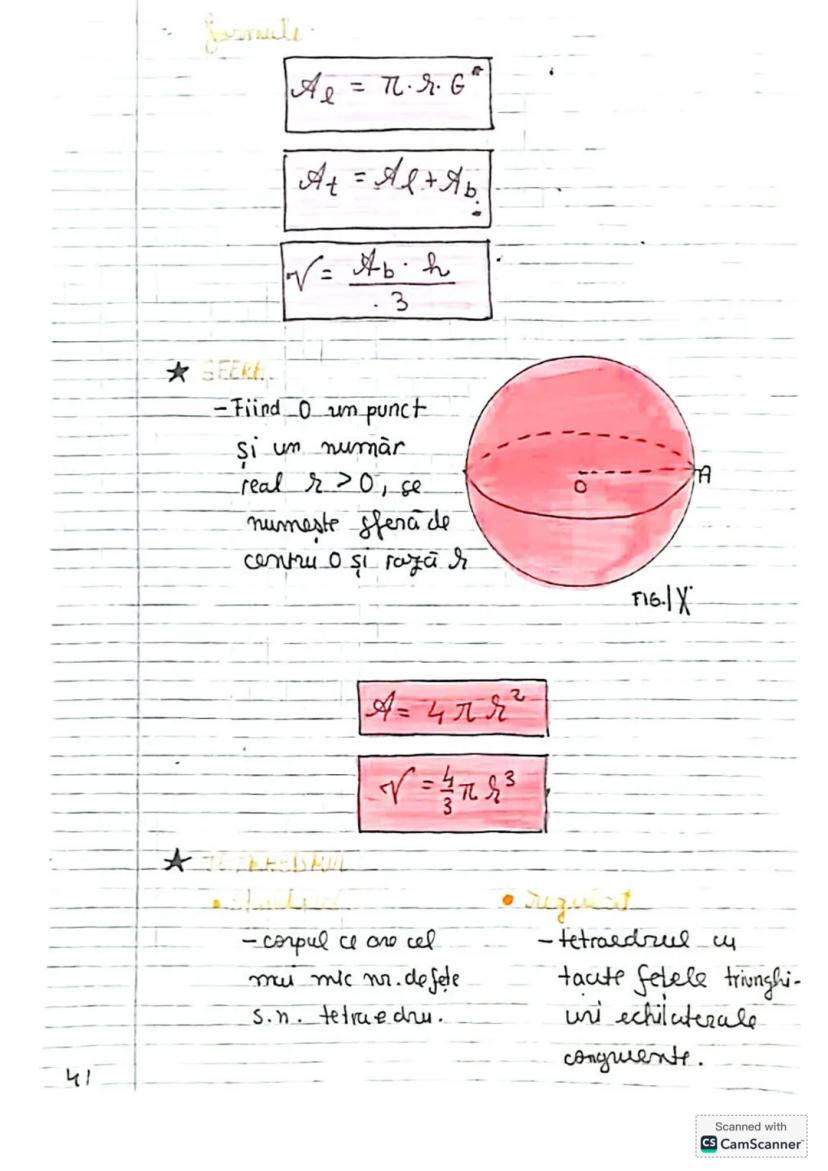 formule
Al = π · r · G
At = Al + Ab
V = Ab · h
3
★ SFERA
- Fiind O un punct
și un număr
real r > 0, se
numește sferă de
centru O și rază r
O
A
FIG. IX
A = 4 π r²
V = 4/3 π r³
★ TETRAEDRUL
• regulat
- corpul ce are cel
mai mic nr. de fețe
s.n. tetraedru.
- tetraedrul cu
toate fețele triunghi-
uri echilaterale
congruente.
41
Scanned with
CS CamScanner